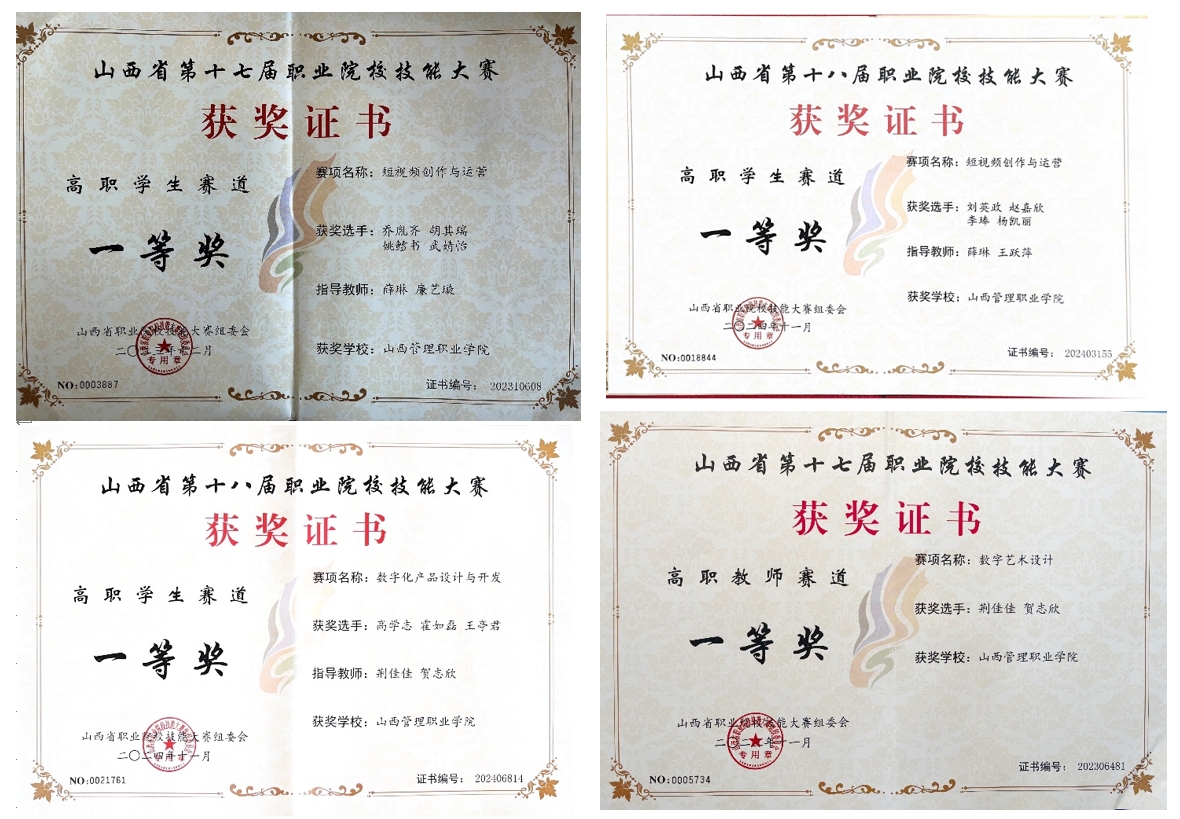 山西省第十七届职业院校技能大赛
获奖证书
高职学生赛道
一等奖
赛项名称：短视频创作与运营
获奖选手：乔胤齐 胡其瑞
姚懿书 武婧怡
指导教师：薛琳 廉艺璇
获奖学校：山西管理职业学院
山西省职业院校技能大赛组委会
二〇二三年十二月
专用章
NO:0003887
证书编号： 202310608
山西省第十八届职业院校技能大赛
获奖证书
高职学生赛道
一等奖
赛项名称：短视频创作与运营
获奖选手：刘英政 赵嘉欣
李臻 杨凯丽
指导教师：薛琳 王跃萍
获奖学校：山西管理职业学院
山西省职业院校技能大赛组委会
二〇二四年十一月
专用章
NO:0018844
证书编号： 202403155
山西省第十八届职业院校技能大赛
获奖证书
高职学生赛道
一等奖
赛项名称：数字化产品设计与开发
获奖选手：高学志 霍如磊 王亭君
指导教师：荆佳佳 贺志欣
获奖学校：山西管理职业学院
山西省职业院校技能大赛组委会
二〇二四年十一月
专用章
NO:0021761
证书编号： 202406814
山西省第十七届职业院校技能大赛
获奖证书
高职教师赛道
一等奖
赛项名称：数字艺术设计
获奖选手：荆佳佳 贺志欣
获奖学校：山西管理职业学院
山西省职业院校技能大赛组委会
专用章
NO:0005734
证书编号： 202306481